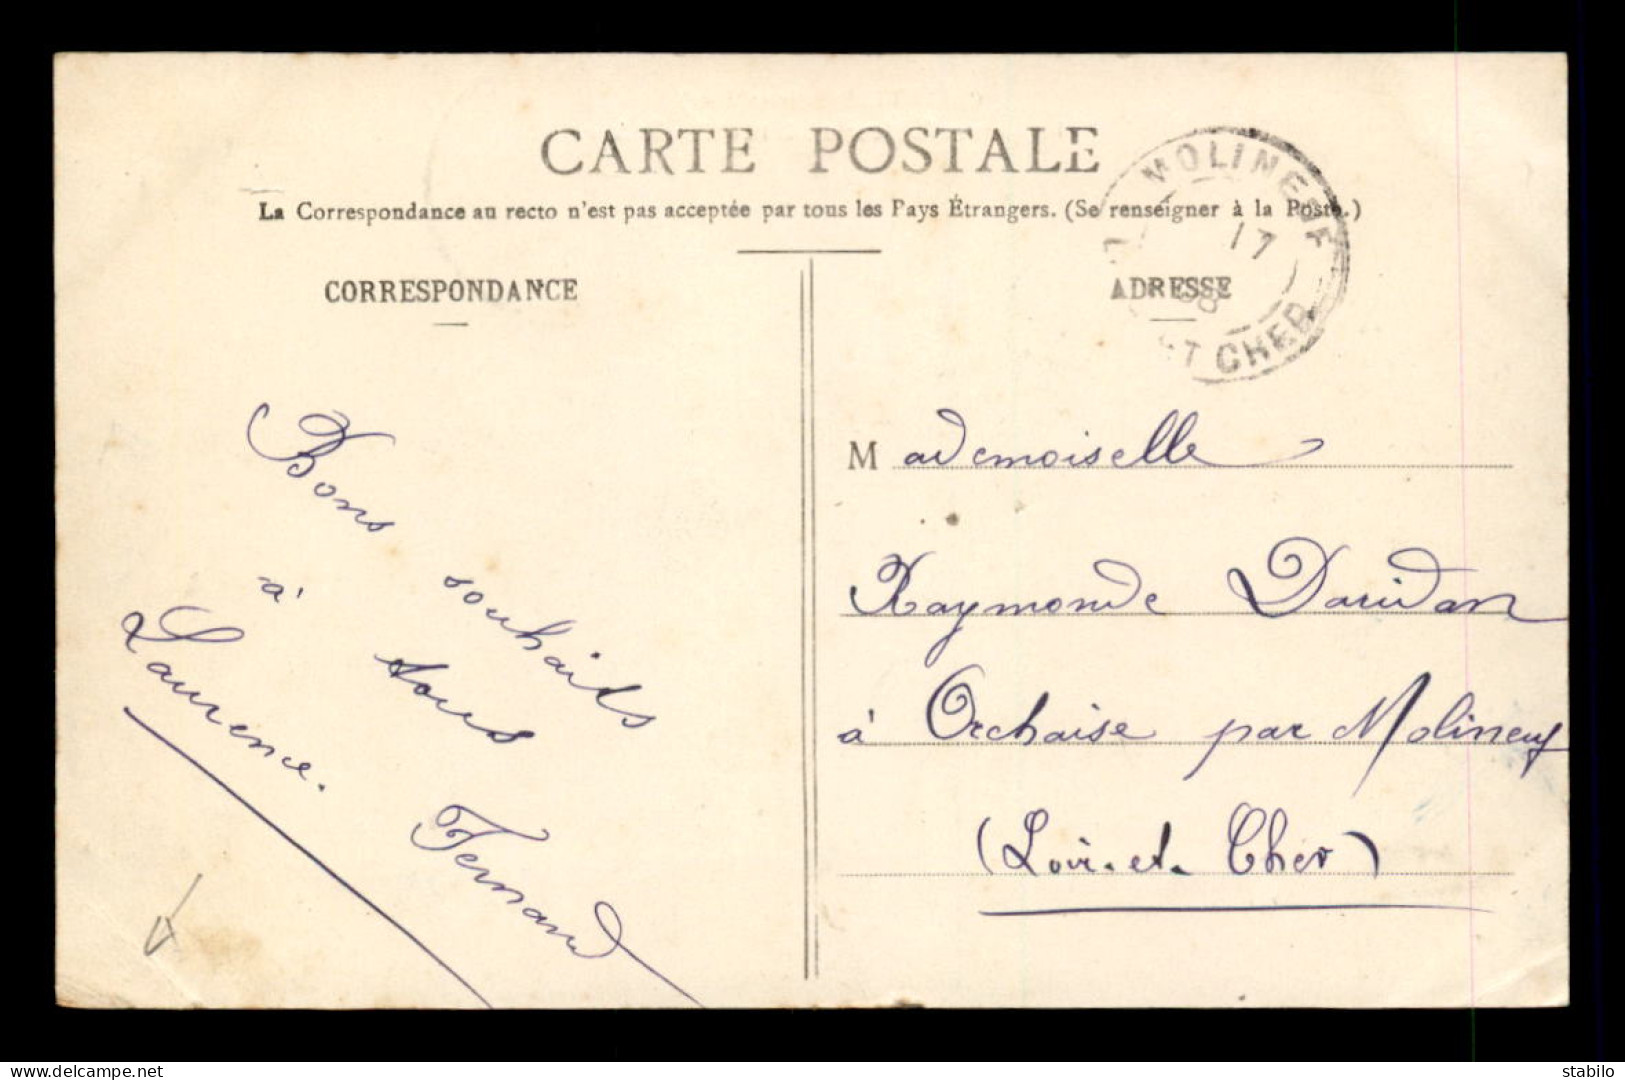 CARTE POSTALE
La Correspondance au recto n'est pas acceptée par tous les Pays Étrangers. (Se renseigner à la Poste.)
CORRESPONDANCE
Bons souhaits
à tous
Laurence. Fernand
ADRESSE
MOLINEUF
17
08
ET CHER
Mademoiselle
Raymonde Daridan
à Orchaise par Molineuf
(Loir-et-Cher)
delcampe.net
stabilo